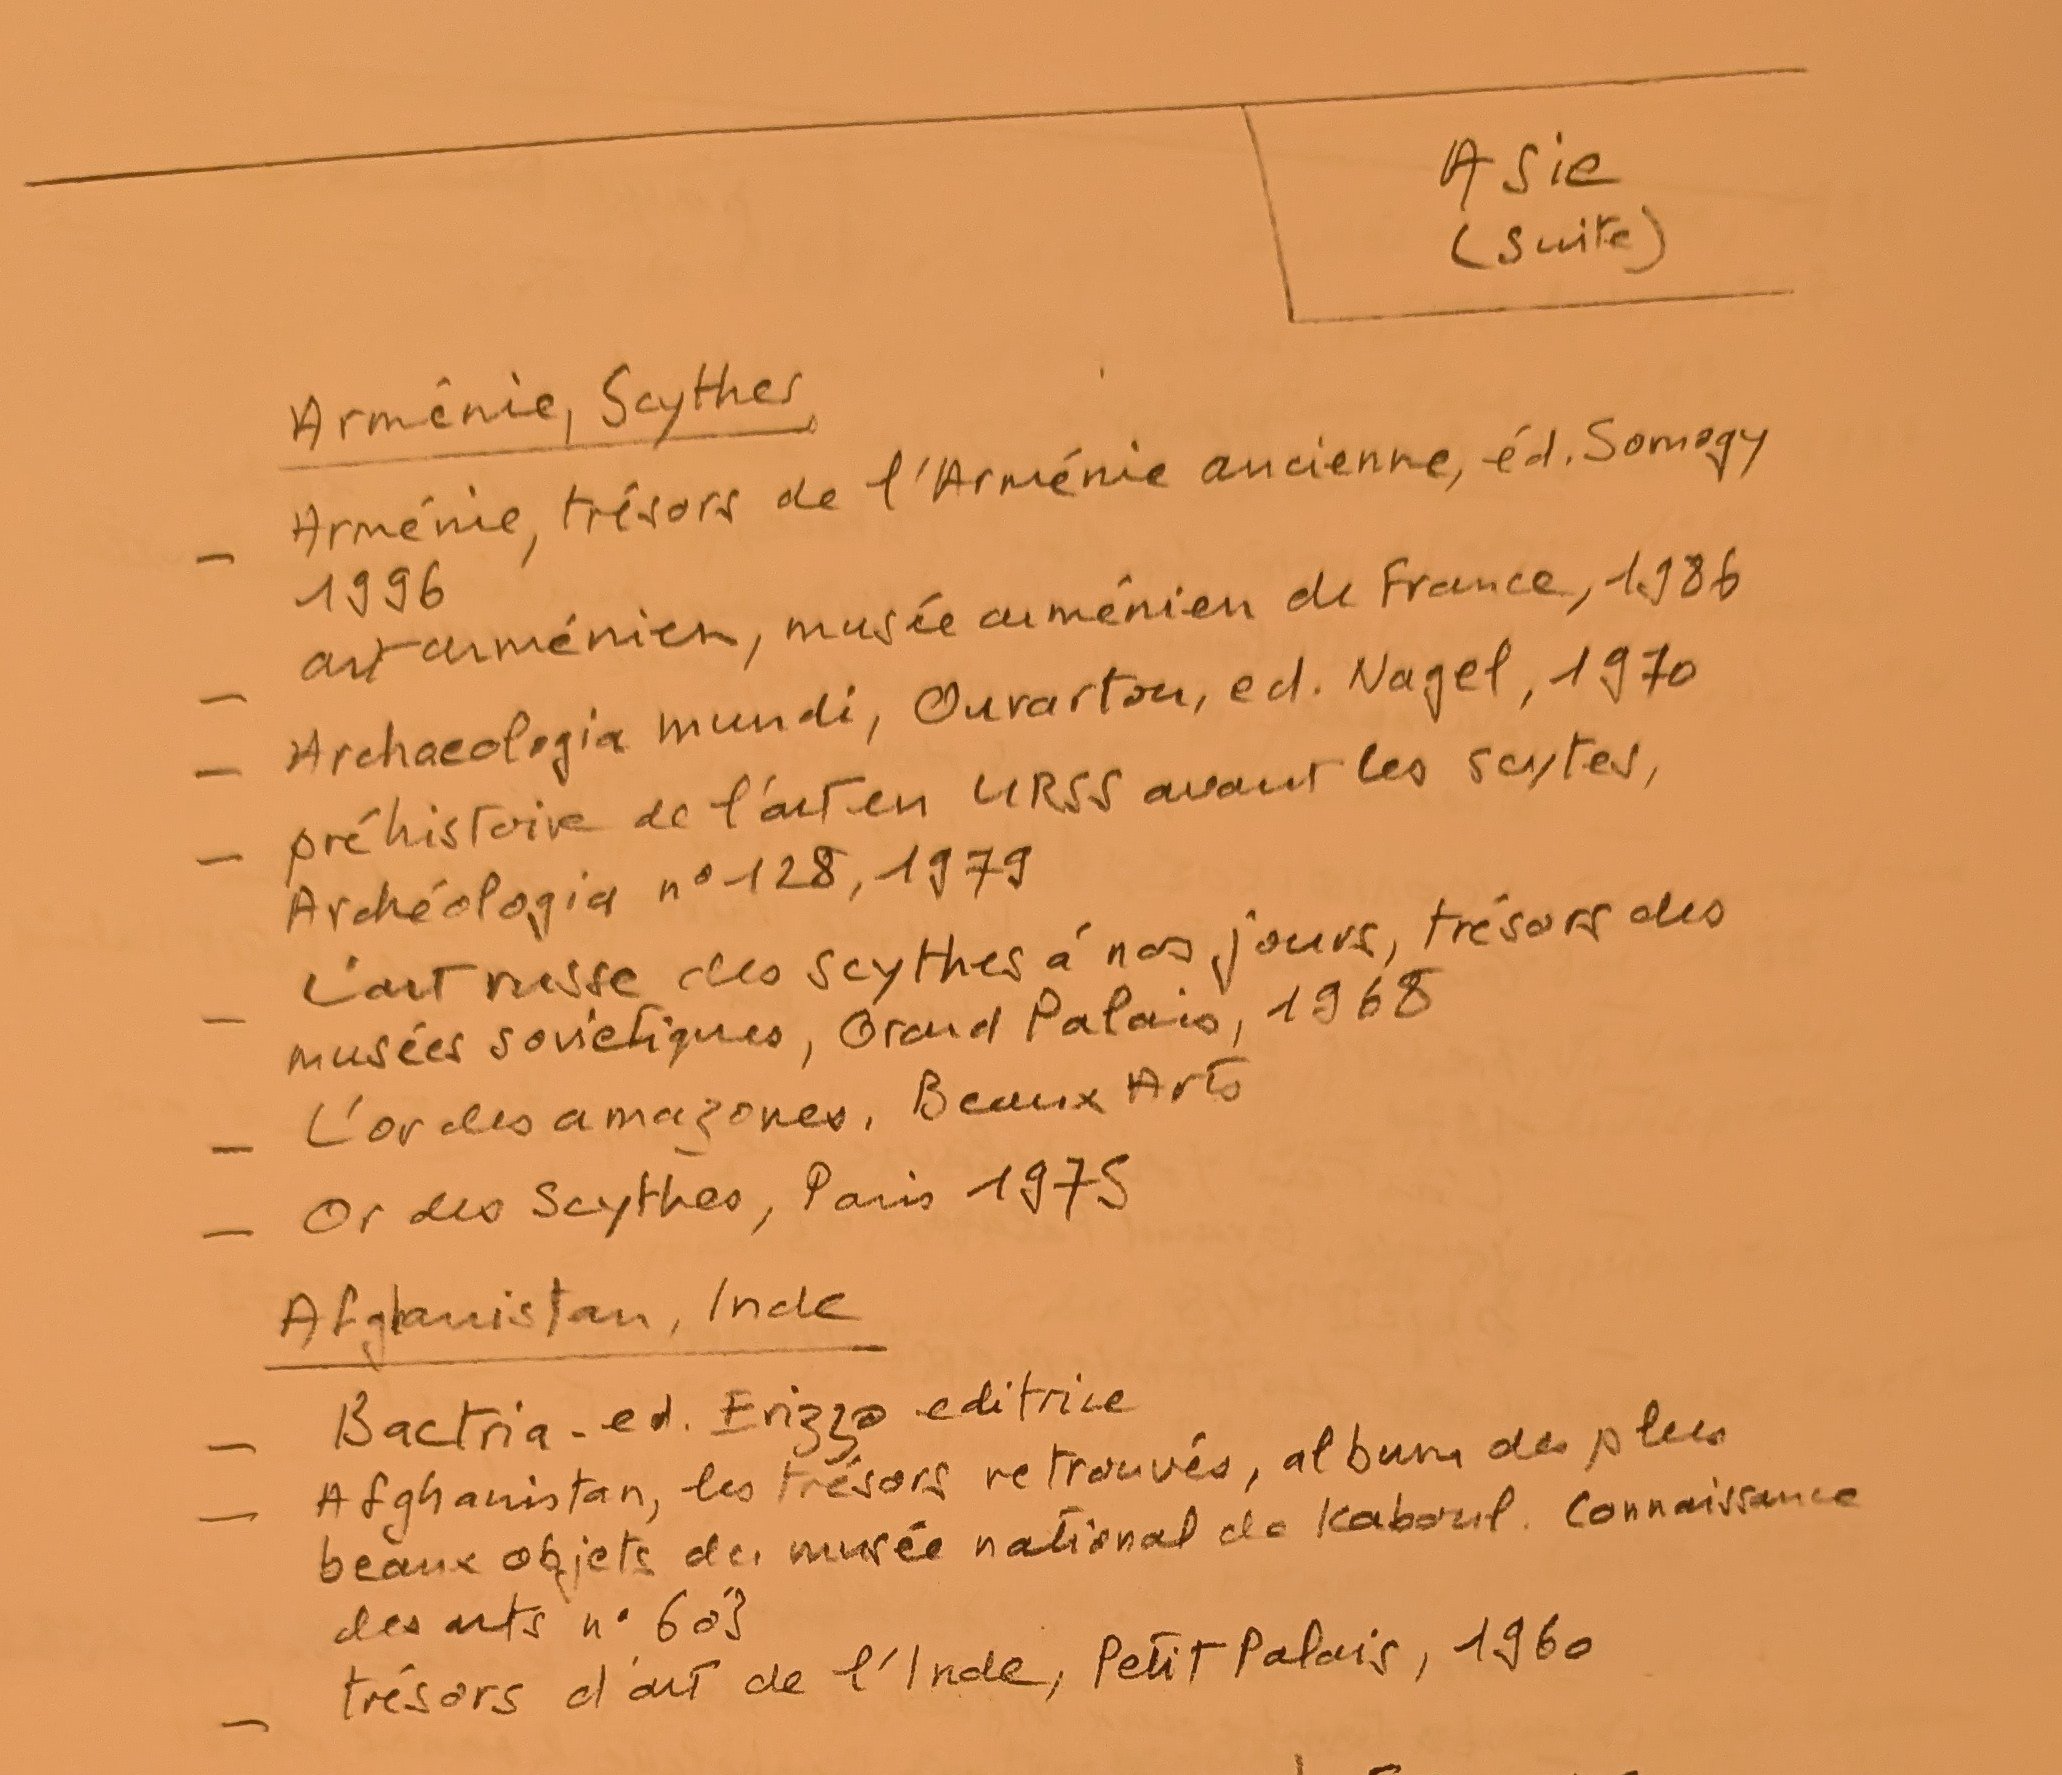 Asie
(suite)
Arménie, Scythes
- Arménie, trésors de l'Arménie ancienne, éd. Somogy
1996
- art arménien, musée arménien de France, 1986
- Archaeologia mundi, Ouvartou, ed. Nagel, 1970
- préhistoire de l'art en URSS avant les scytes,
Archéologia n° 128, 1979
- L'art russe des scythes à nos jours, trésors des
musées soviétiques, Grand Palais, 1968
- L'or des amazones. Beaux Arts
- Or des Scythes, Paris 1975
Afghanistan, Inde
- Bactria - ed. Erizzo editrice
- Afghanistan, les trésors retrouvés, album des plus
beaux objets du musée national de Kaboul. Connaissance
des arts n° 603
- trésors d'art de l'Inde, Petit Palais, 1960